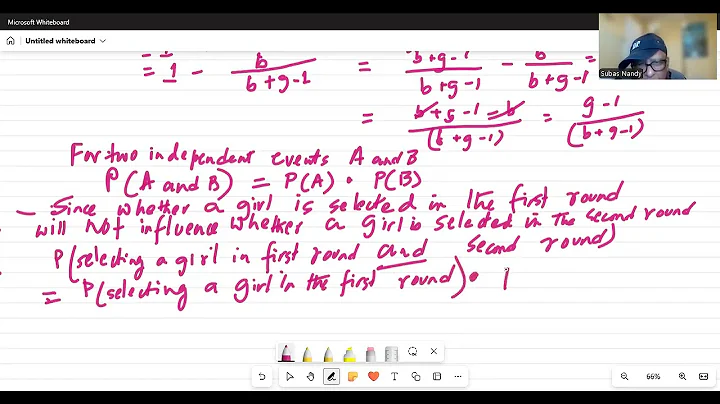 Microsoft Whiteboard
Untitled whiteboard
Subas Nandy
= 1 - b/(b+g-1) = (b+g-1)/(b+g-1) - b/(b+g-1) =
= (b+g-1-b)/(b+g-1) = (g-1)/(b+g-1)
For two independent events A and B
P(A and B) = P(A) · P(B)
- Since whether a girl is selected in the first round
will not influence whether a girl is selected in the second round
P(selecting a girl in first round and second round)
= P(selecting a girl in the first round) ·
66%